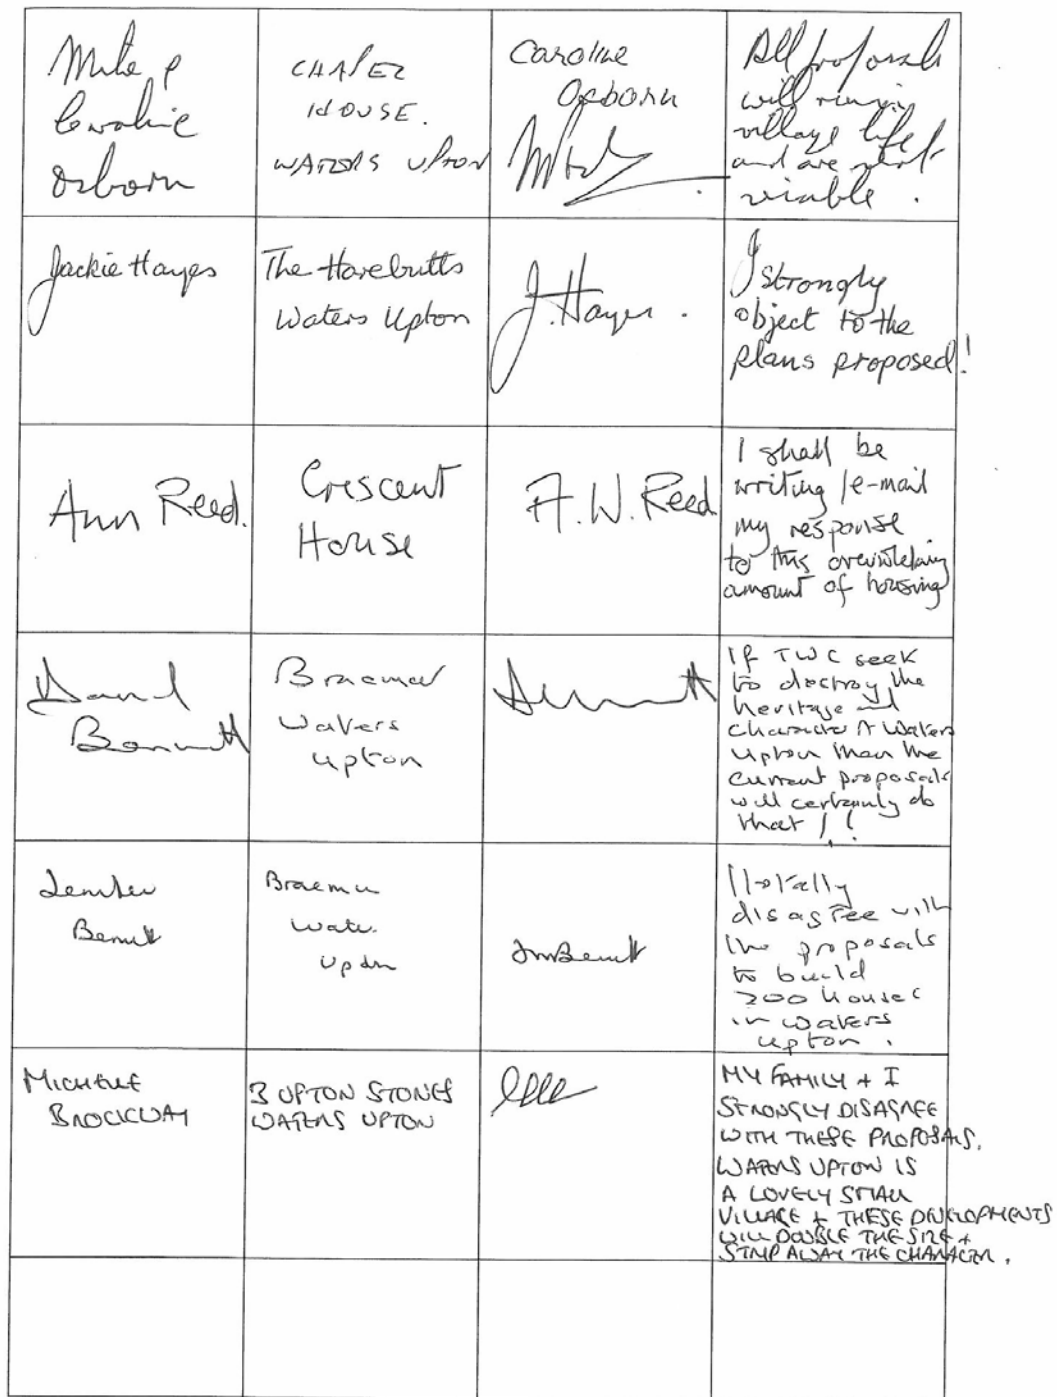 Mike &
Caroline
Osborn
CHAPEL
HOUSE.
WATERS UPTON
Caroline
Osborn
All proposals
will ruin
village life
and are not
viable.
Jackie Hayes
The Harebutts
Waters Upton
J. Hayes.
I strongly
object to the
plans proposed!
Ann Reed.
Crescent
House
A. W. Reed
I shall be
writing /e-mail
my response
to this overwhelming
amount of housing
David
Bennett
Braemar
Waters
Upton
If TWC seek
to destroy the
heritage and
character of Waters
Upton then the
current proposals
will certainly do
that!!
Bennett
Braemar
Waters
Upton
I totally
disagree with
the proposals
to build
200 houses
in Waters
Upton.
MICHELLE
BROCKWAY
3 UPTON STONES
WATERS UPTON
MY FAMILY + I
STRONGLY DISAGREE
WITH THESE PROPOSALS.
WATERS UPTON IS
A LOVELY SMALL
VILLAGE + THESE DEVELOPMENTS
WILL DOUBLE THE SIZE +
STRIP AWAY THE CHARACTER.